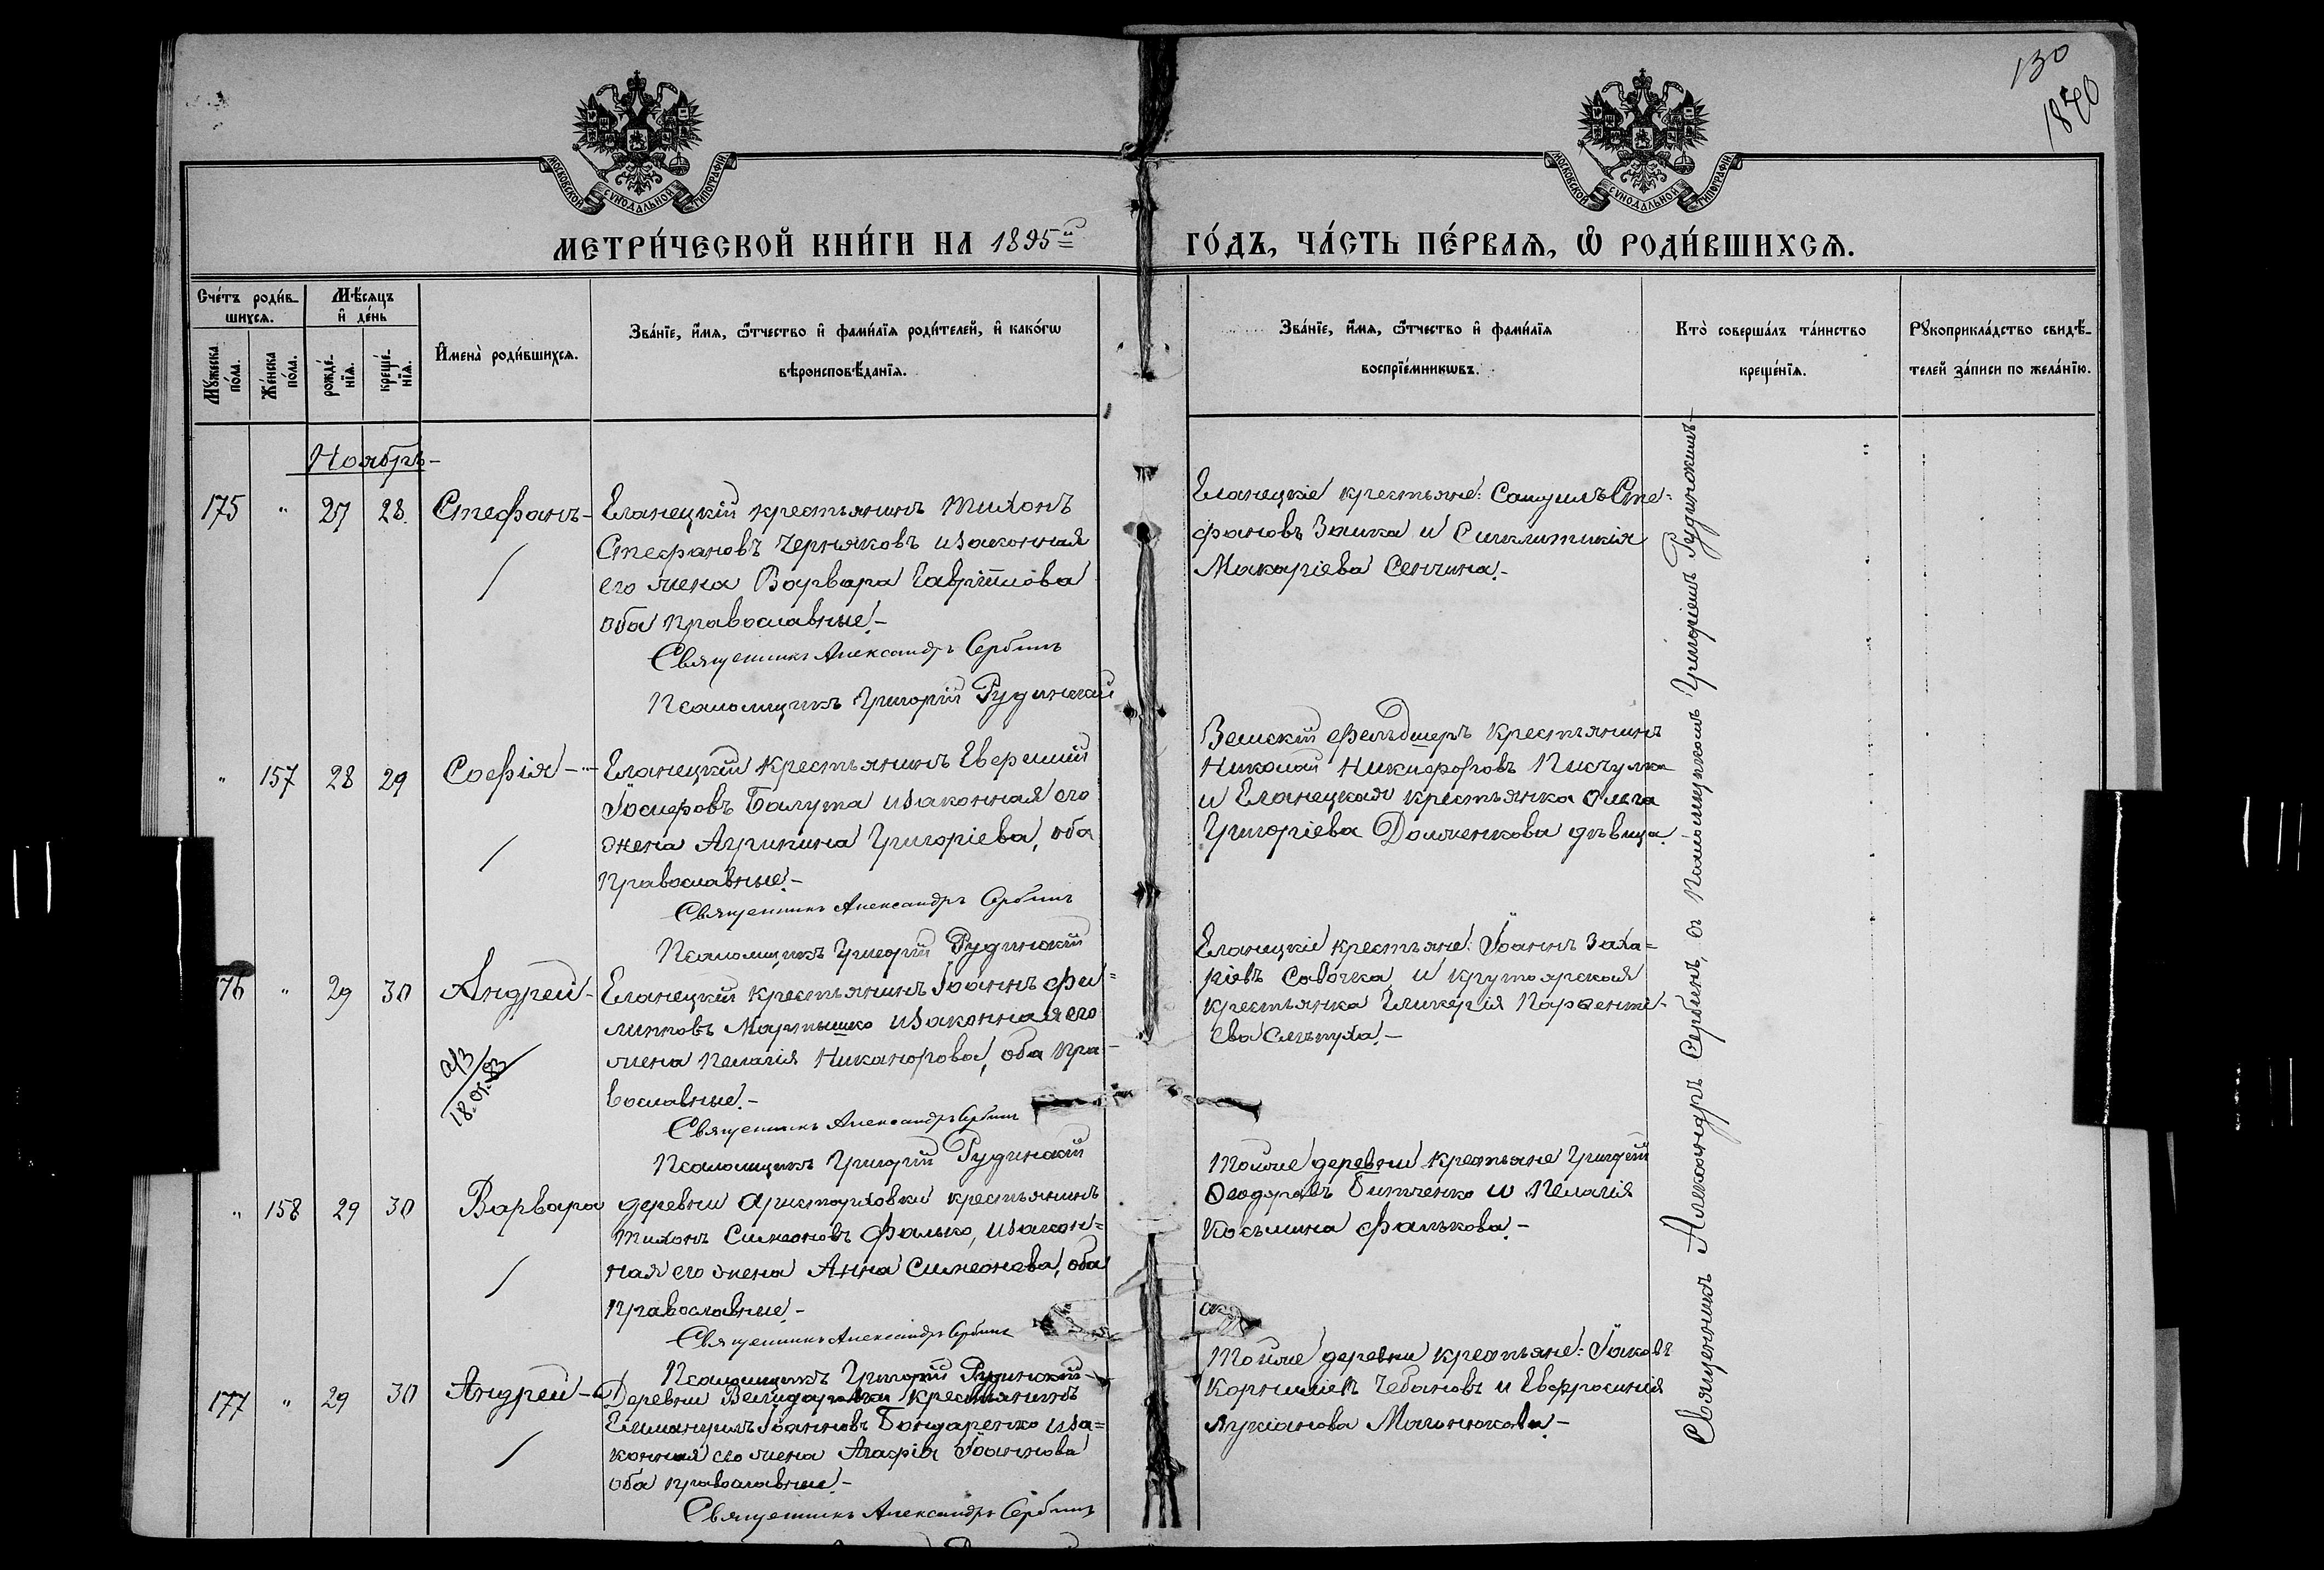 130
1870
МОСКОВСКОЙ СУНОДАЛЬНОЙ ТИПОГРАФІИ
МОСКОВСКОЙ СУНОДАЛЬНОЙ ТИПОГРАФІИ
МЕТРИ́ЧЕСКОЙ КНИ́ГИ НА 1895й ГО́ДЪ, ЧА́СТЬ ПЕ́РВАЯ, Ѡ РОДИ́ВШИХСЯ.
Сче́тъ роди́в-
шихся.
Мꙋ́жеска по́ла.
Же́нска по́ла.
Мѣ́сяцъ и де́нь
рожде́-нія.
креще́-нія.
Имена̀ роди́вшихся.
Зва́ніе, и́мя, ѻ́тчество и фами́лія роди́телей, и како́гѡ
вѣроисповѣ́данія.
Зва́ніе, и́мя, ѻ́тчество и фами́лія
воспріе́мникѡвъ.
Кто̀ соверша́лъ та́инство
креще́нія.
Рꙋкоприкла́дство свидѣ́-
телей за́писи по жела́нію.
Ноябрь-
175 " 27 28. Стефанъ- Еланецкій крестьянинъ Тихонъ
Стефановъ Черняковъ и законная
его жена Варвара Гавріилова
оба православные.-
Священникъ Александръ Сербинъ
Псаломщикъ Григорій Рудинскій
Еланецкіе крестьяне: Самуилъ Сте=
фановъ Заика и Синклитикія
Макаріева Сенчина.-
" 157 28 29 Софія- Еланецкій крестьянинъ Евфимій
Іосифовъ Балута и законная его
жена Агрипина Григоріева, оба
православные.-
Священникъ Александръ Сербинъ
Псаломщикъ Григорій Рудинскій
Земскій фельдшеръ крестьянинъ
Николай Никифоровъ Пикулка
и Еланецкая крестьянка Ольга
Григоріева Долженкова дѣвица.
176 " 29 30 Андрей- Еланецкій крестьянинъ Іоаннъ Фи=
липповъ Мартышко и законная его
жена Пелагія Никанорова, оба пра-
вославные.-
Священникъ Александръ Сербинъ
Псаломщикъ Григорій Рудинскій
Еланецкіе крестьяне: Іоаннъ Заха=
ріевъ Савочка и крутоярская
крестьянка Гликерія Парѳенті-
ева Слѣпуха.-
" 158 29 30 Варвара деревни Аристарховки крестьянинъ
Тихонъ Симеоновъ Фалько, и закон=
ная его жена Анна Симеонова, оба
православные.-
Священникъ Александръ Сербинъ
Псаломщикъ Григорій Рудинскій-
Тойже деревни крестьяне Григорій
Ѳеодоровъ Битченко и Пелагія
Косьмина Фалькова.-
177 " 29 30 Андрей- Деревни крестьянинъ
Еммануилъ Іоанновъ Бондаренко и за=
конная его жена Агафія Іоаннова
оба православные.-
Священникъ Александръ Сербинъ
Тойже деревни крестьяне: Іаковъ
Корниліевъ Чебановъ и Евфросинія
Лукіанова
Священникъ Александръ Сербинъ, съ Псаломщикомъ Григоріемъ Рудинскимъ-